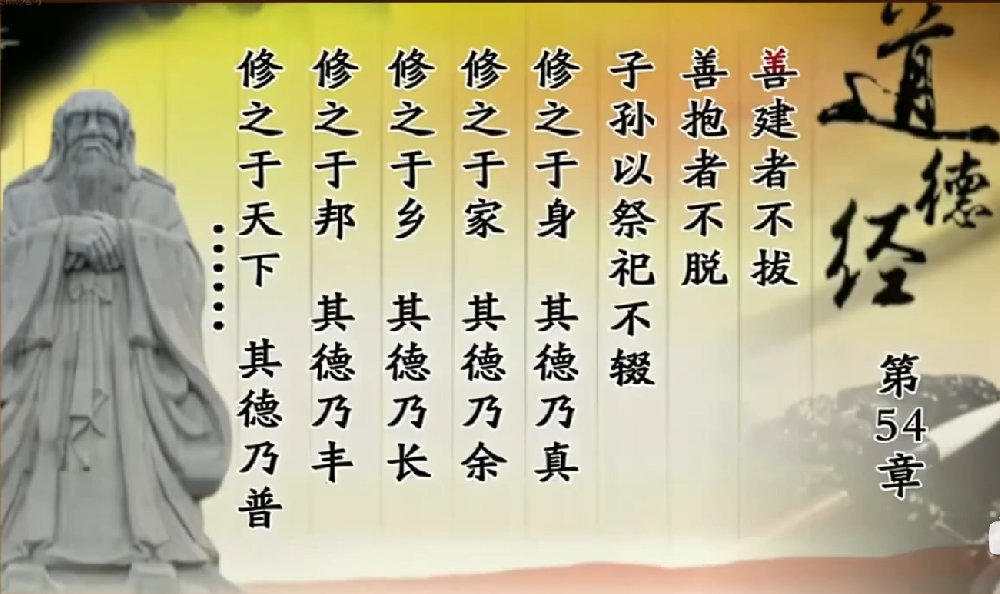 道德经
第54章
善建者不拔
善抱者不脱
子孙以祭祀不辍
修之于身 其德乃真
修之于家 其德乃余
修之于乡 其德乃长
修之于邦 其德乃丰
修之于天下 其德乃普
……